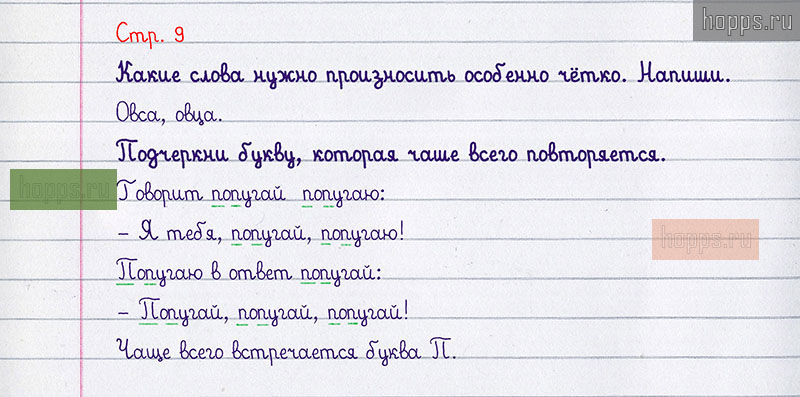 hopps.ru
Стр. 9
Какие слова нужно произносить особенно чётко. Напиши.
Овса, овца.
Подчеркни букву, которая чаше всего повторяется.
hopps.ru
Говорит попугай попугаю:
– Я тебя, попугай, попугаю!
hopps.ru
Попугаю в ответ попугай:
– Попугай, попугай, попугай!
Чаще всего встречается буква П.